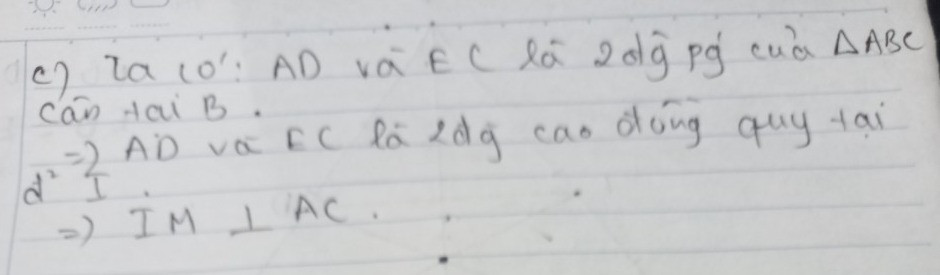 c) Ta có: AD và EC là 2 đg pg của ΔABC
cân tại B.
=) AD và EC là 2 đg cao đồng quy tại
đ² I.
=) IM ⊥ AC.